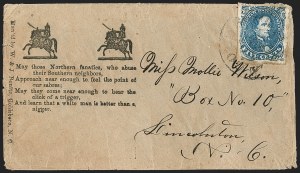 May those Northern fanatics, who abuse
their Southern neighbors,
Approach near enough to feel the point of
our sabres;
May they come near enough to hear the
click of a trigger,
And learn that a white man is better than a
nigger.
Miss Mollie Wilson,
"Box No. 10,"
Lincolnton,
N. C.